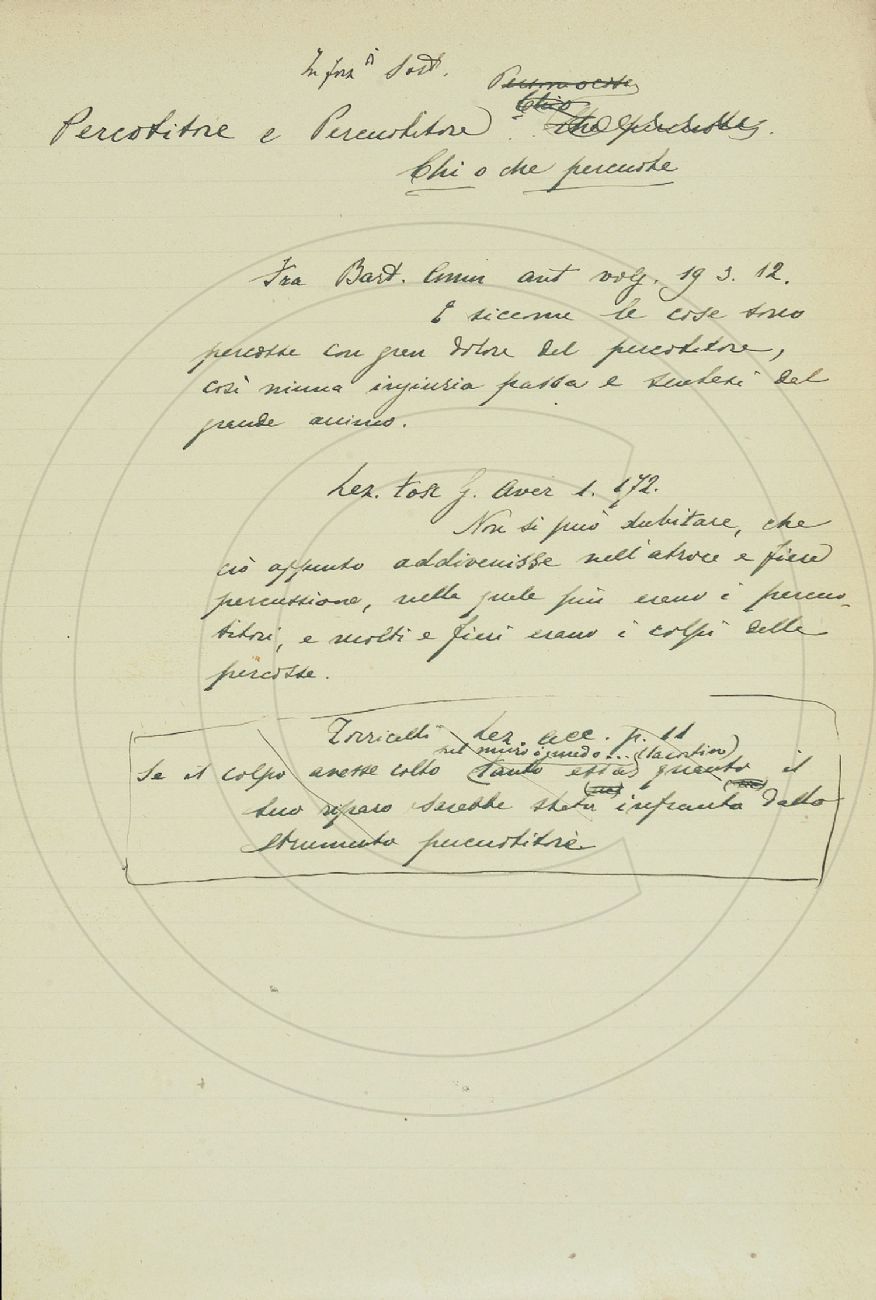 In forz di Sost.
Percotitore e Percuotitore
Chi o che percuote
Fra Bart. Amm ant volg. 19 3. 12.
E siccome le cose sono
percosse con gran dolore del percotitore,
così niuna ingiuria passa e sentesi del
grande animo.
Lez. tosc G. Aver 1. 172.
Non si può dubitare, che
ciò appunto addivenisse nell'atroce e fiera
percussione, nella quale più erano i percuo-
titori, e molti e fieri erano i colpi delle
percosse.
Torricelli Lez. acc. p. 11
nel muro ignudo... (la cortina)
Se il colpo avesse colto (tanto essa) quanto il
suo riparo sarebbe stata infranta dallo
strumento percuotitore